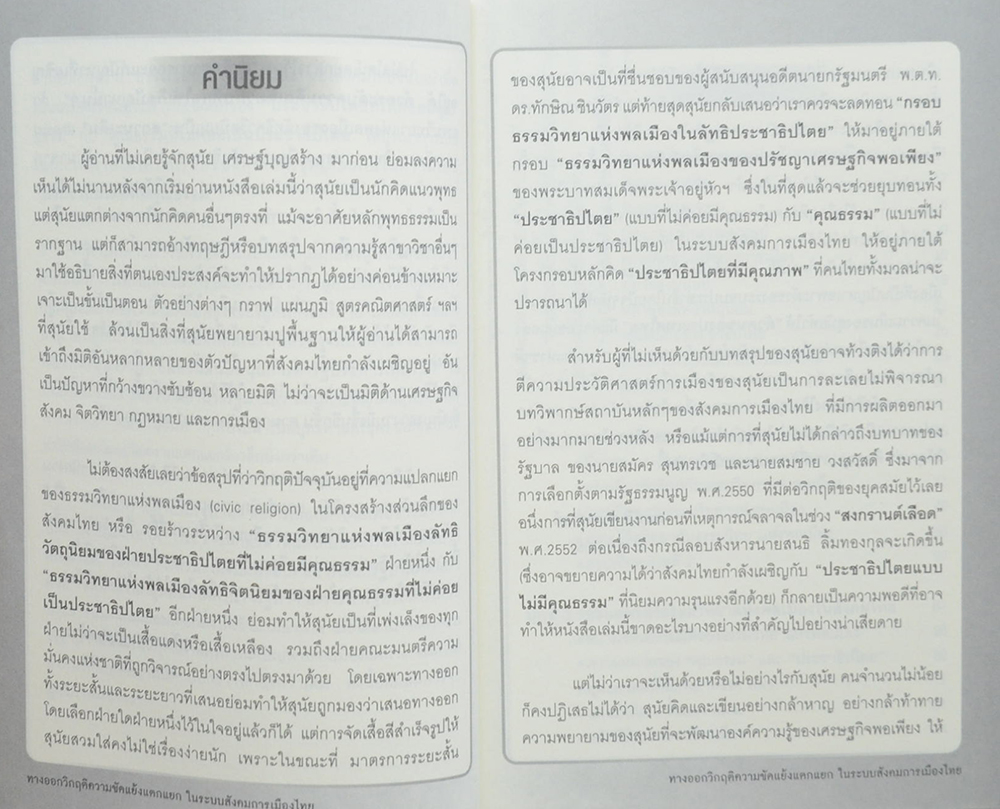 คำนิยม
ผู้อ่านที่ไม่เคยรู้จักสุนัย เศรษฐ์บุญสร้าง มาก่อน ย่อมลงความ
เห็นได้ไม่นานหลังจากเริ่มอ่านหนังสือเล่มนี้ว่าสุนัยเป็นนักคิดแนวพุทธ
แต่สุนัยแตกต่างจากนักคิดคนอื่นๆตรงที่ แม้จะอาศัยหลักพุทธธรรมเป็น
รากฐาน แต่ก็สามารถอ้างทฤษฎีหรือบทสรุปจากความรู้สาขาวิชาอื่นๆ
มาใช้อธิบายสิ่งที่ตนเองประสงค์จะทำให้ปรากฏได้อย่างค่อนข้างเหมาะ
เจาะเป็นขั้นเป็นตอน ตัวอย่างต่างๆ กราฟ แผนภูมิ สูตรคณิตศาสตร์ ฯลฯ
ที่สุนัยใช้ ล้วนเป็นสิ่งที่สุนัยพยายามปูพื้นฐานให้ผู้อ่านได้สามารถ
เข้าถึงมิติอันหลากหลายของตัวปัญหาที่สังคมไทยกำลังเผชิญอยู่ อัน
เป็นปัญหาที่กว้างขวางซับซ้อน หลายมิติ ไม่ว่าจะเป็นมิติด้านเศรษฐกิจ
สังคม จิตวิทยา กฎหมาย และการเมือง
ไม่ต้องสงสัยเลยว่าข้อสรุปที่ว่าวิกฤติปัจจุบันอยู่ที่ความแปลกแยก
ของธรรมวิทยาแห่งพลเมือง (civic religion) ในโครงสร้างส่วนลึกของ
สังคมไทย หรือ รอยร้าวระหว่าง "ธรรมวิทยาแห่งพลเมืองลัทธิ
วัตถุนิยมของฝ่ายประชาธิปไตยที่ไม่ค่อยมีคุณธรรม" ฝ่ายหนึ่ง กับ
"ธรรมวิทยาแห่งพลเมืองลัทธิจิตนิยมของฝ่ายคุณธรรมที่ไม่ค่อย
เป็นประชาธิปไตย" อีกฝ่ายหนึ่ง ย่อมทำให้สุนัยเป็นที่เพ่งเล็งของทุก
ฝ่ายไม่ว่าจะเป็นเสื้อแดงหรือเสื้อเหลือง รวมถึงฝ่ายคณะมนตรีความ
มั่นคงแห่งชาติที่ถูกวิจารณ์อย่างตรงไปตรงมาด้วย โดยเฉพาะทางออก
ทั้งระยะสั้นและระยะยาวที่เสนอย่อมทำให้สุนัยถูกมองว่าเสนอทางออก
โดยเลือกฝ่ายใดฝ่ายหนึ่งไว้ในใจอยู่แล้วก็ได้ แต่การจัดเสื้อสีสำเร็จรูปให้
สุนัยสวมใส่คงไม่ใช่เรื่องง่ายนัก เพราะในขณะที่ มาตรการระยะสั้น
ทางออกวิกฤติความขัดแย้งแตกแยก ในระบบสังคมการเมืองไทย
ของสุนัยอาจเป็นที่ชื่นชอบของผู้สนับสนุนอดีตนายกรัฐมนตรี พ.ต.ท.
ดร.ทักษิณ ชินวัตร แต่ท้ายสุดสุนัยกลับเสนอว่าเราควรจะลดทอน "กรอบ
ธรรมวิทยาแห่งพลเมืองในลัทธิประชาธิปไตย" ให้มาอยู่ภายใต้
กรอบ "ธรรมวิทยาแห่งพลเมืองของปรัชญาเศรษฐกิจพอเพียง"
ของพระบาทสมเด็จพระเจ้าอยู่หัวฯ ซึ่งในที่สุดแล้วจะช่วยยุบทอนทั้ง
"ประชาธิปไตย" (แบบที่ไม่ค่อยมีคุณธรรม) กับ "คุณธรรม" (แบบที่ไม่
ค่อยเป็นประชาธิปไตย) ในระบบสังคมการเมืองไทย ให้อยู่ภายใต้
โครงกรอบหลักคิด "ประชาธิปไตยที่มีคุณภาพ" ที่คนไทยทั้งมวลน่าจะ
ปรารถนาได้
สำหรับผู้ที่ไม่เห็นด้วยกับบทสรุปของสุนัยอาจท้วงติงได้ว่าการ
ตีความประวัติศาสตร์การเมืองของสุนัยเป็นการละเลยไม่พิจารณา
บทวิพากษ์สถาบันหลักๆของสังคมการเมืองไทย ที่มีการผลิตออกมา
อย่างมากมายช่วงหลัง หรือแม้แต่การที่สุนัยไม่ได้กล่าวถึงบทบาทของ
รัฐบาล ของนายสมัคร สุนทรเวช และนายสมชาย วงสวัสดิ์ ซึ่งมาจาก
การเลือกตั้งตามรัฐธรรมนูญ พ.ศ.2550 ที่มีต่อวิกฤติของยุคสมัยไว้เลย
อนึ่งการที่สุนัยเขียนงานก่อนที่เหตุการณ์จลาจลในช่วง "สงกรานต์เลือด"
พ.ศ.2552 ต่อเนื่องถึงกรณีลอบสังหารนายสนธิ ลิ้มทองกุลจะเกิดขึ้น
(ซึ่งอาจขยายความได้ว่าสังคมไทยกำลังเผชิญกับ "ประชาธิปไตยแบบ
ไม่มีคุณธรรม" ที่นิยมความรุนแรงอีกด้วย) ก็กลายเป็นความพอดีที่อาจ
ทำให้หนังสือเล่มนี้ขาดอะไรบางอย่างที่สำคัญไปอย่างน่าเสียดาย
แต่ไม่ว่าเราจะเห็นด้วยหรือไม่อย่างไรกับสุนัย คนจำนวนไม่น้อย
ก็คงปฏิเสธไม่ได้ว่า สุนัยคิดและเขียนอย่างกล้าหาญ อย่างกล้าท้าทาย
ความพยายามของสุนัยที่จะพัฒนาองค์ความรู้ของเศรษฐกิจพอเพียง ให้
ทางออกวิกฤติความขัดแย้งแตกแยก ในระบบสังคมการเมืองไทย